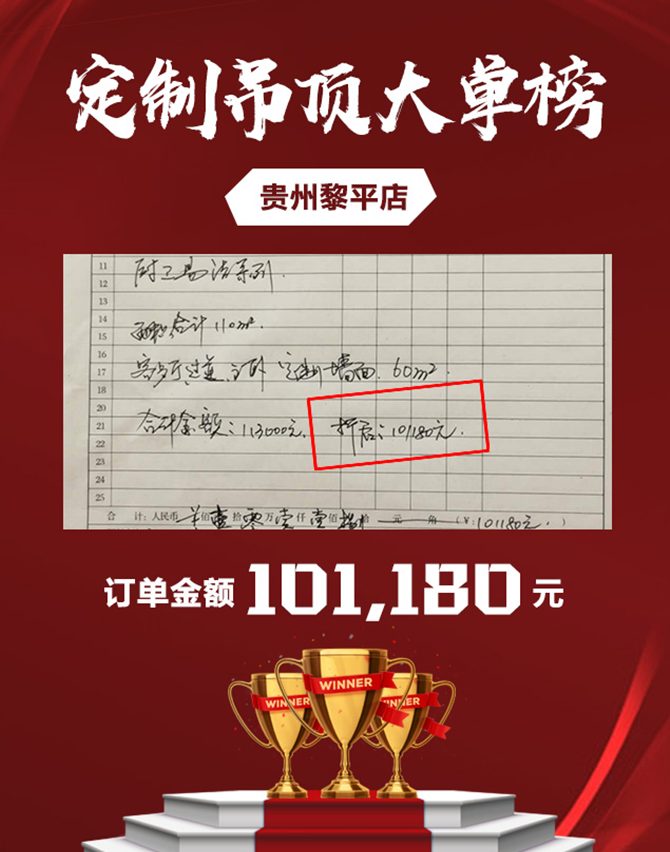 定制吊顶大单榜
贵州黎平店
11
12
13
14
面积合计110m².
15
16
17
客厅过道 主卧 定制墙面. 60m².
18
20
21
合计金额:113000元. 折后:101180元.
22
23
24
25
合 计:人民币 佰 壹 拾 零 万 壹 仟 壹 佰 捌 拾 元 角 (¥:101180元.)
订单金额 101,180 元
WINNER
WINNER
WINNER